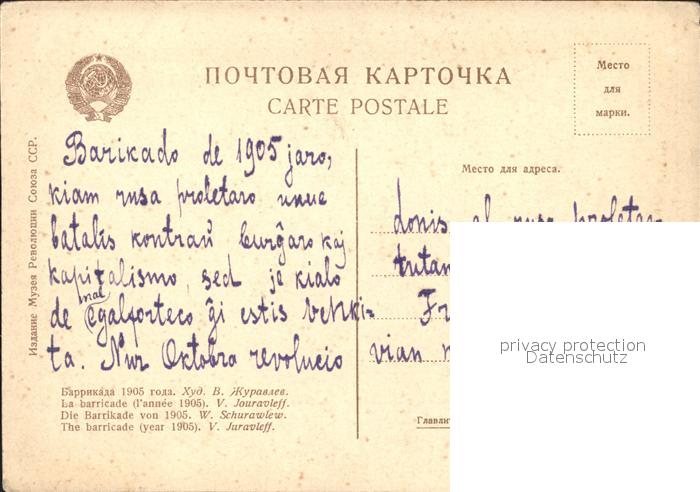 ПОЧТОВАЯ КАРТОЧКА
CARTE POSTALE
Место
для
марки.
Издание Музея Революции Союза ССР.
Barikado de 1905 jaro,
kiam rusa proletaro unue
batalis kontraŭ burĝaro kaj
kapitalismo, sed je kialo
mal
de egalforteco ĝi estis venki-
ta. Nur Oktobra revolucio
Место для адреса.
donis al rusa proletar
tutan
Fr
vian
Баррикада 1905 года. Худ. В. Журавлев.
La barricade (l'année 1905). V. Jouravleff.
Die Barrikade von 1905. W. Schurawlew.
The barricade (year 1905). V. Juravleff.
Главли
privacy protection
Datenschutz